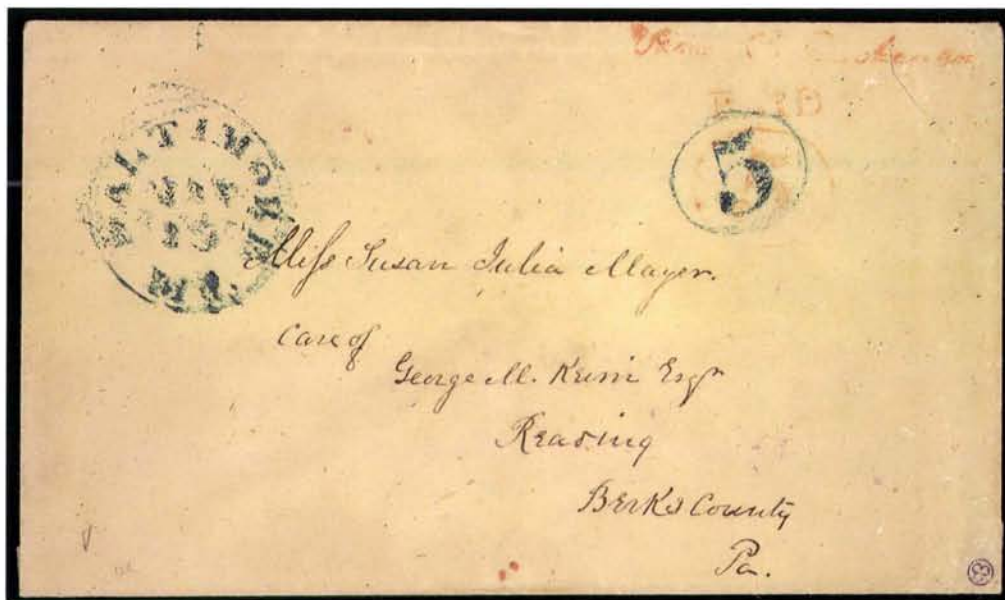 BALTIMORE Md.
5
Miss Susan Julia Mayer.
Care of
George M. Keim Esqr
Reading
Berks County
Pa.